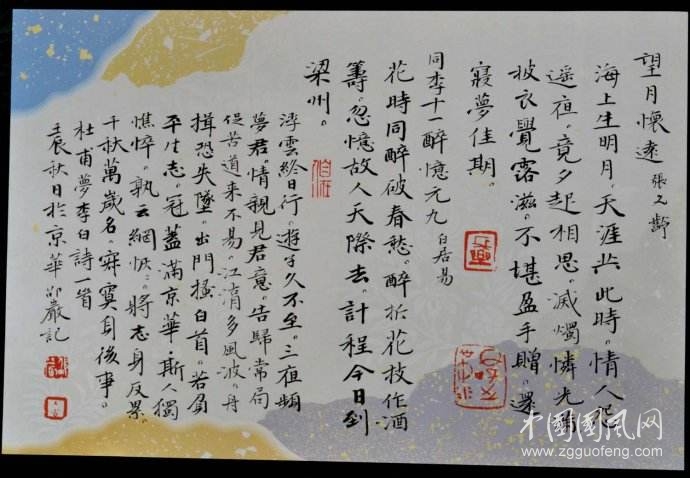 望月懷遠 張九齡
海上生明月。天涯共此時。情人怨
遥夜。竟夕起相思。滅燭憐光滿
披衣覺露滋。不堪盈手贈。還
寢夢佳期。
同李十一醉憶元九 白居易
花時同醉破春愁。醉折花枝作酒
籌。忽憶故人天際去。計程今日到
梁州。
自在
浮雲終日行。遊子久不至。三夜頻
夢君。情親見君意。告歸常局
促苦道来不易。江湖多風波。舟
楫恐失墜。出門搔白首。若負
平生志。冠蓋滿京華。斯人獨
憔悴。孰云網恢〻。將老身反累。
千秋萬歲名。寂寞身後事。
杜甫夢李白詩一首
壬辰秋日於京華 嚴記
中國國风网
www.zgguofeng.com